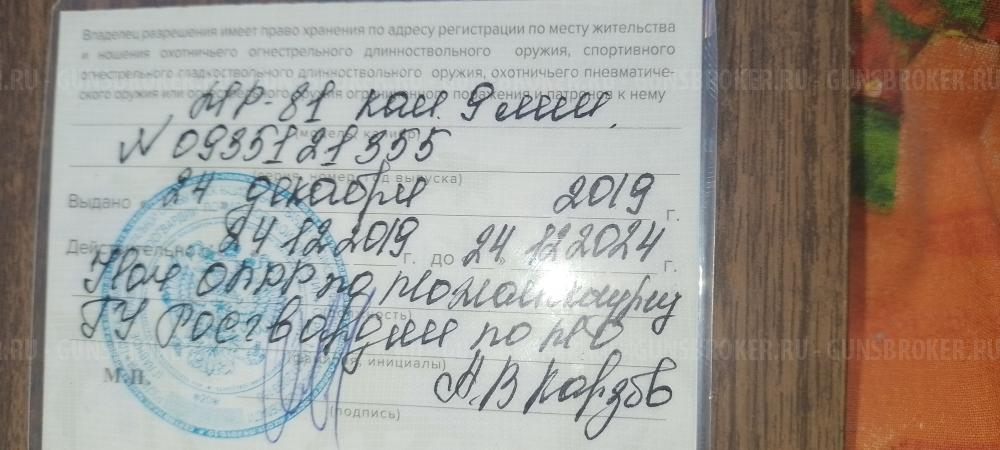 Владелец разрешения имеет право хранения по адресу регистрации по месту жительства
и ношения охотничьего огнестрельного длинноствольного оружия, спортивного
огнестрельного гладкоствольного длинноствольного оружия, охотничьего пневматиче-
ского оружия или оружия ограниченного поражения и патронов к нему
МР-81 кал. 9 мм,
N 0935121355
серия, номер, год выпуска)
Выдано « 24 декабря 2019 г.
Действительно 24 12 2019 г. до 24 12 2024 г.
по
ГУ Росгвардии по МО
инициалы)
М.П. А.В
(подпись)
GUNSBROKER.RU
GUNSBROKER.RU